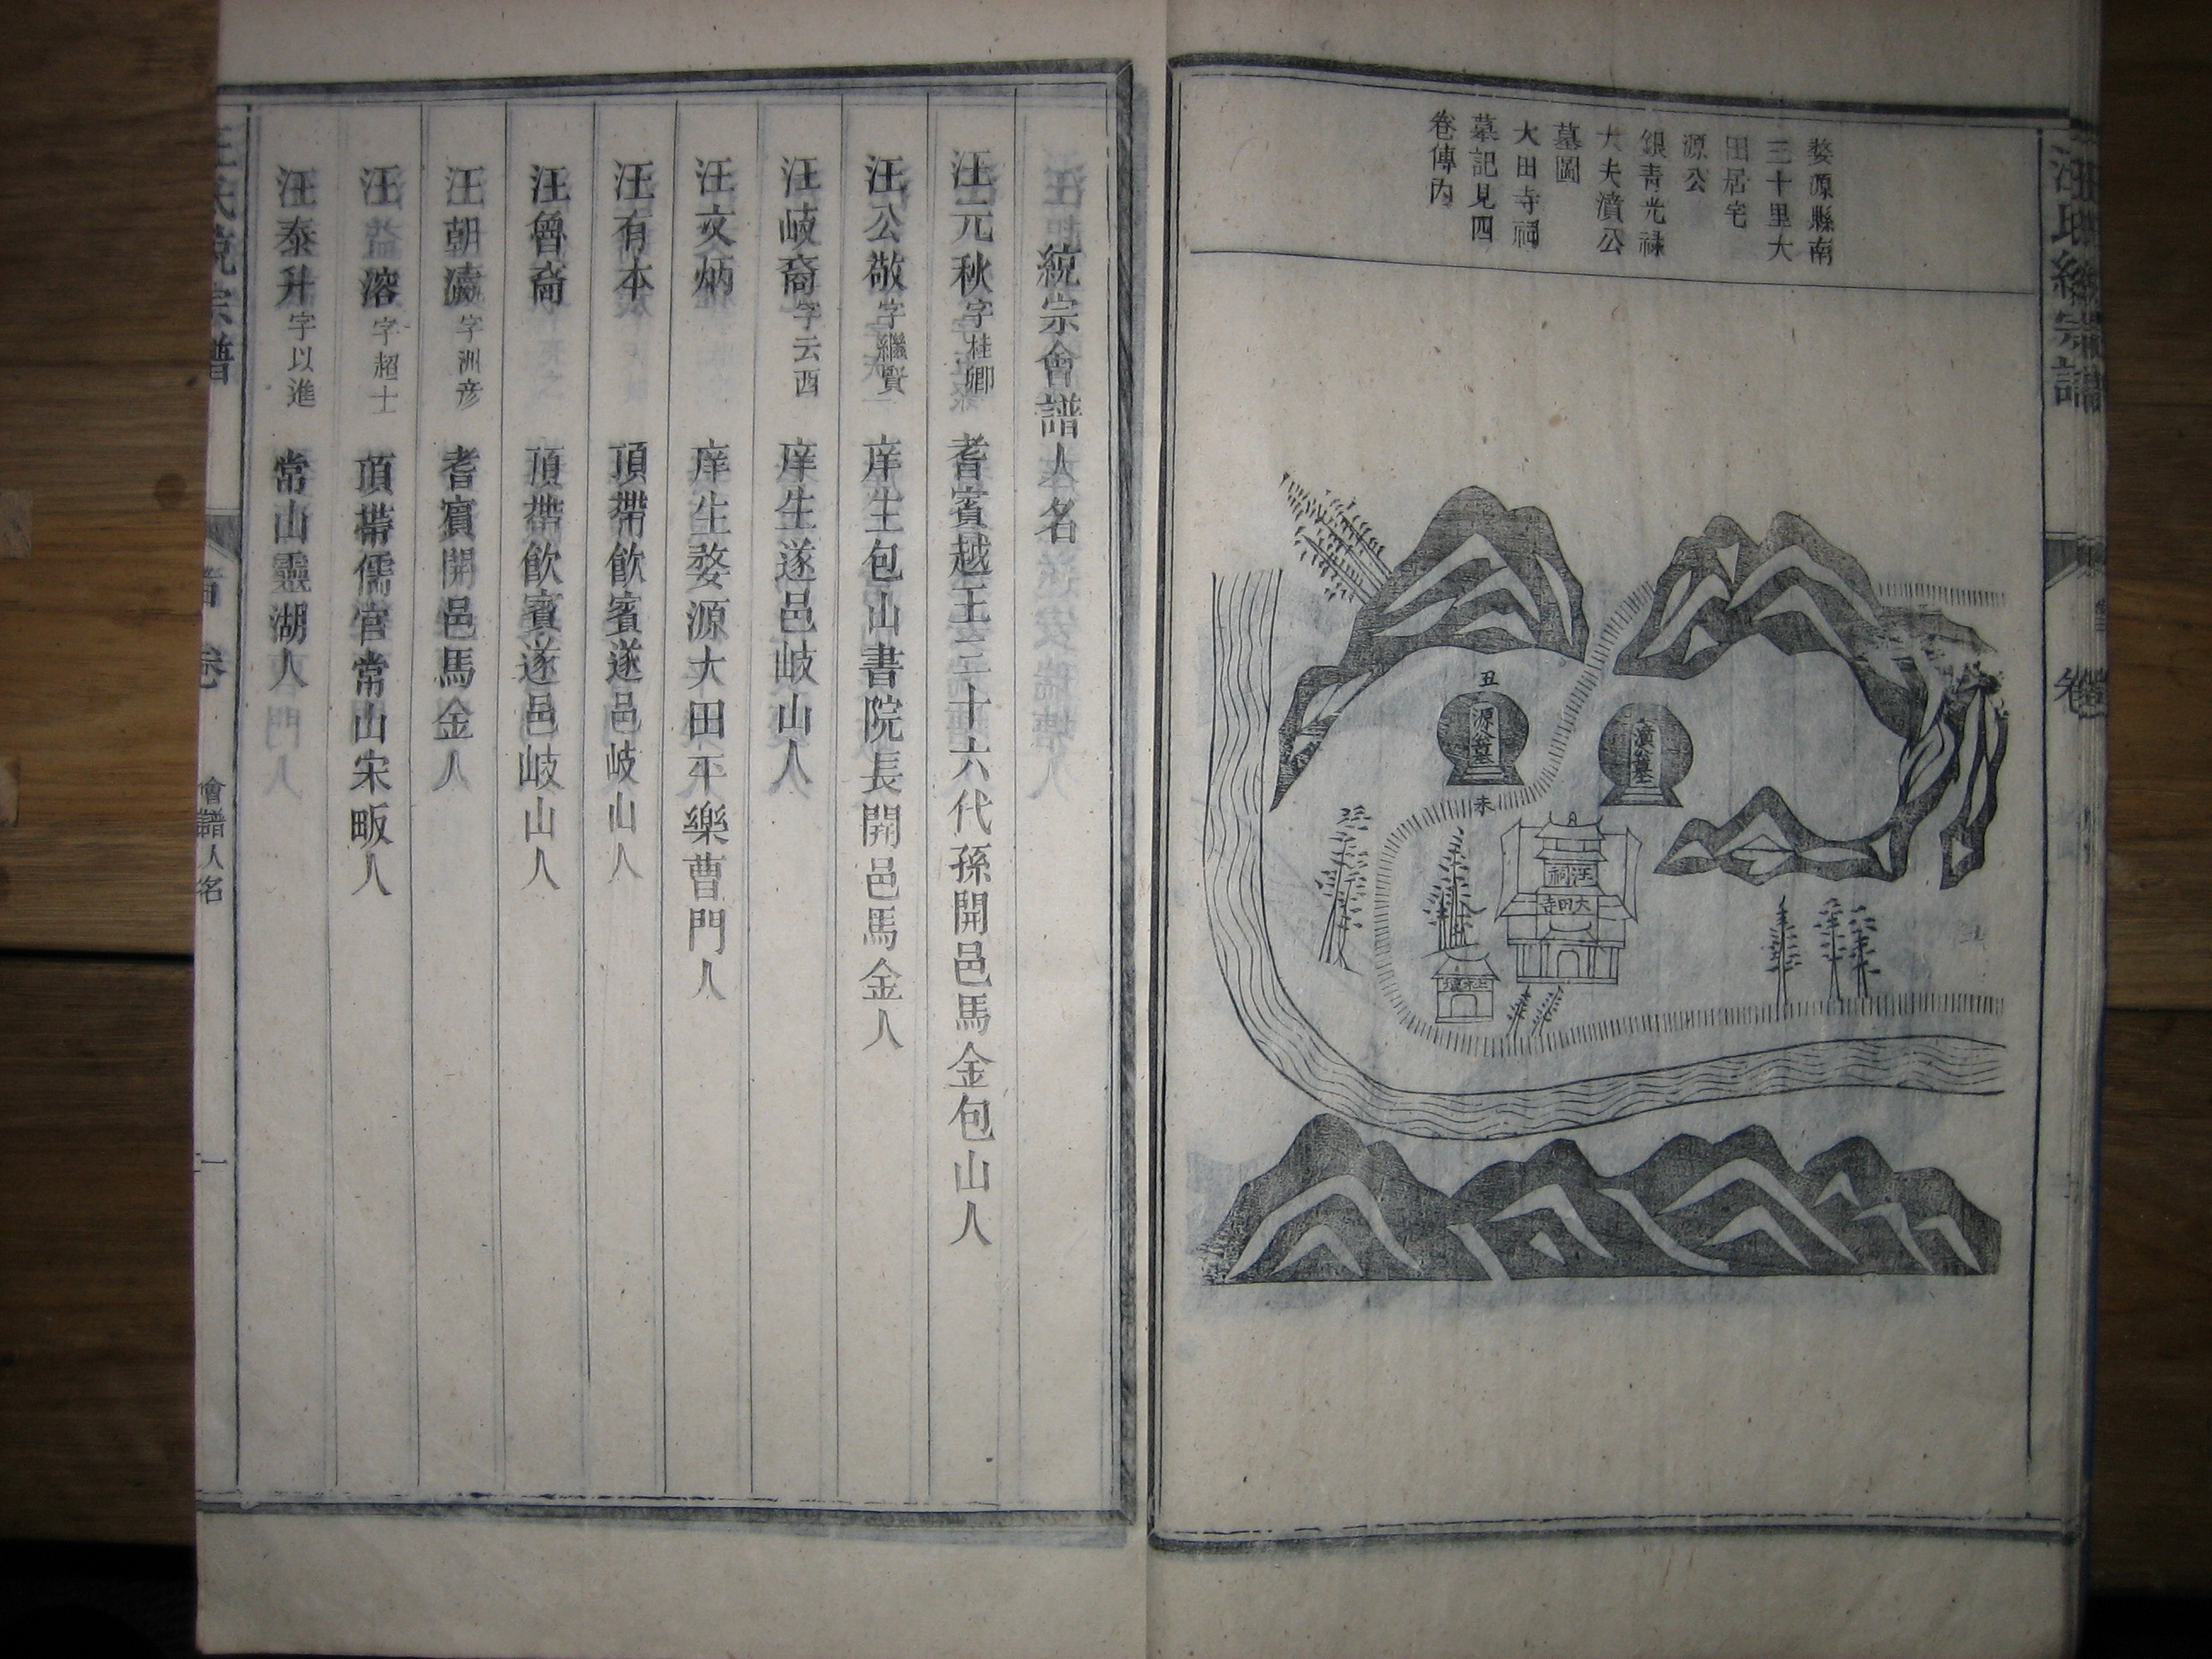 婺源縣南
三十里大
田居宅
源公
銀青光祿
大夫濆公
墓圖
大田寺祠
墓記見四
卷傳內
丑
源公墓
未
濆公墓
汪祠
大田寺
社壇
汪氏統宗譜
卷
統宗會譜人名
汪元秋字桂卿 耆賓越王三十六代孫開邑馬金包山人
汪公敬字繼賢 庠生包山書院長開邑馬金人
汪岐裔字云酉 庠生遂邑岐山人
汪文炳 庠生婺源大田平樂曹門人
汪有本 頂帶飲賓遂邑岐山人
汪魯裔 頂帶飲賓遂邑岐山人
汪朝濤字洲彦 耆賓開邑馬金人
汪溶字超士 頂帶儒官常山宋畈人
汪泰升字以進 常山靈湖人
汪氏統宗譜
首卷
會譜人名
一